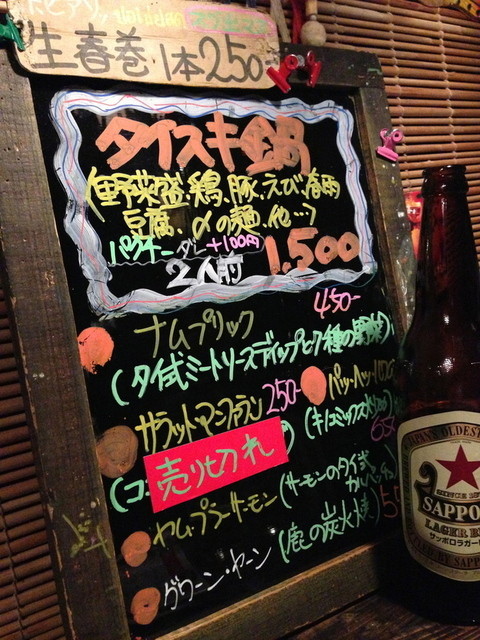 生春巻 1本250-
タイスキ鍋
(野菜盛、鶏、豚、えび、春雨
豆腐、〆の麺、他…)
パクチーオーダー+100円
2人前 1,500
ナムプリック 450-
(タイ式ミートソースディップと7種の野菜)
サラットマンファラン 250-
売り切れ
(キノコミックス
ヤムプラーサーモン (サーモンのタイ式
カルパッチョ)
グワーン・ヤーン (鹿の炭火焼)
SINCE 1876
SAPPO
LAGER B
サッポロラガー
BY SAPP